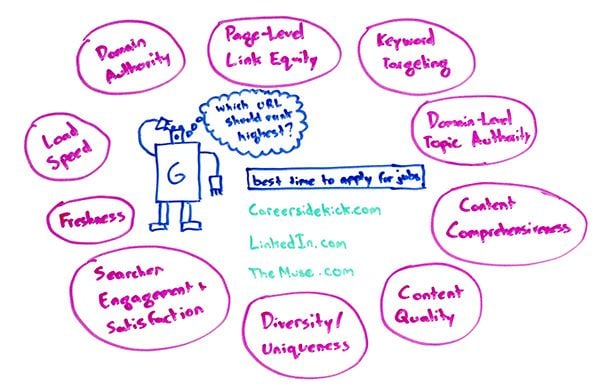 Domain
Authority
Page-Level
Link Equity
Keyword
Targeting
Load
Speed
which URL
should rank
highest?
Domain-Level
Topic Authority
G
best time to apply for jobs
Freshness
Careersidekick.com
LinkedIn.com
The Muse.com
Content
Comprehensiveness
Searcher
Engagement +
Satisfaction
Diversity/
Uniqueness
Content
Quality